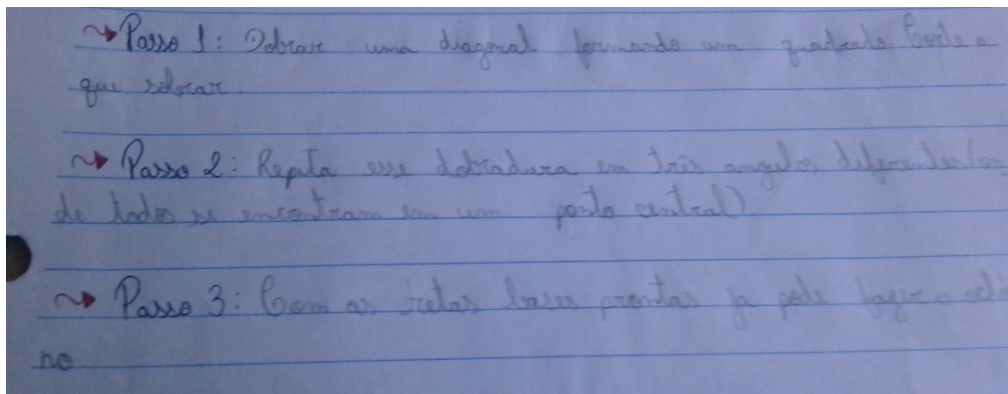 Passo 1: Dobrar uma diagonal formando um quadrado. Corte o
que sobrar.
Passo 2: Repita esse dobradura em três angulos diferentes (on
de todos se encontram em um ponto central)
Passo 3: Com as retas bases prontas ja pode fazer o
no